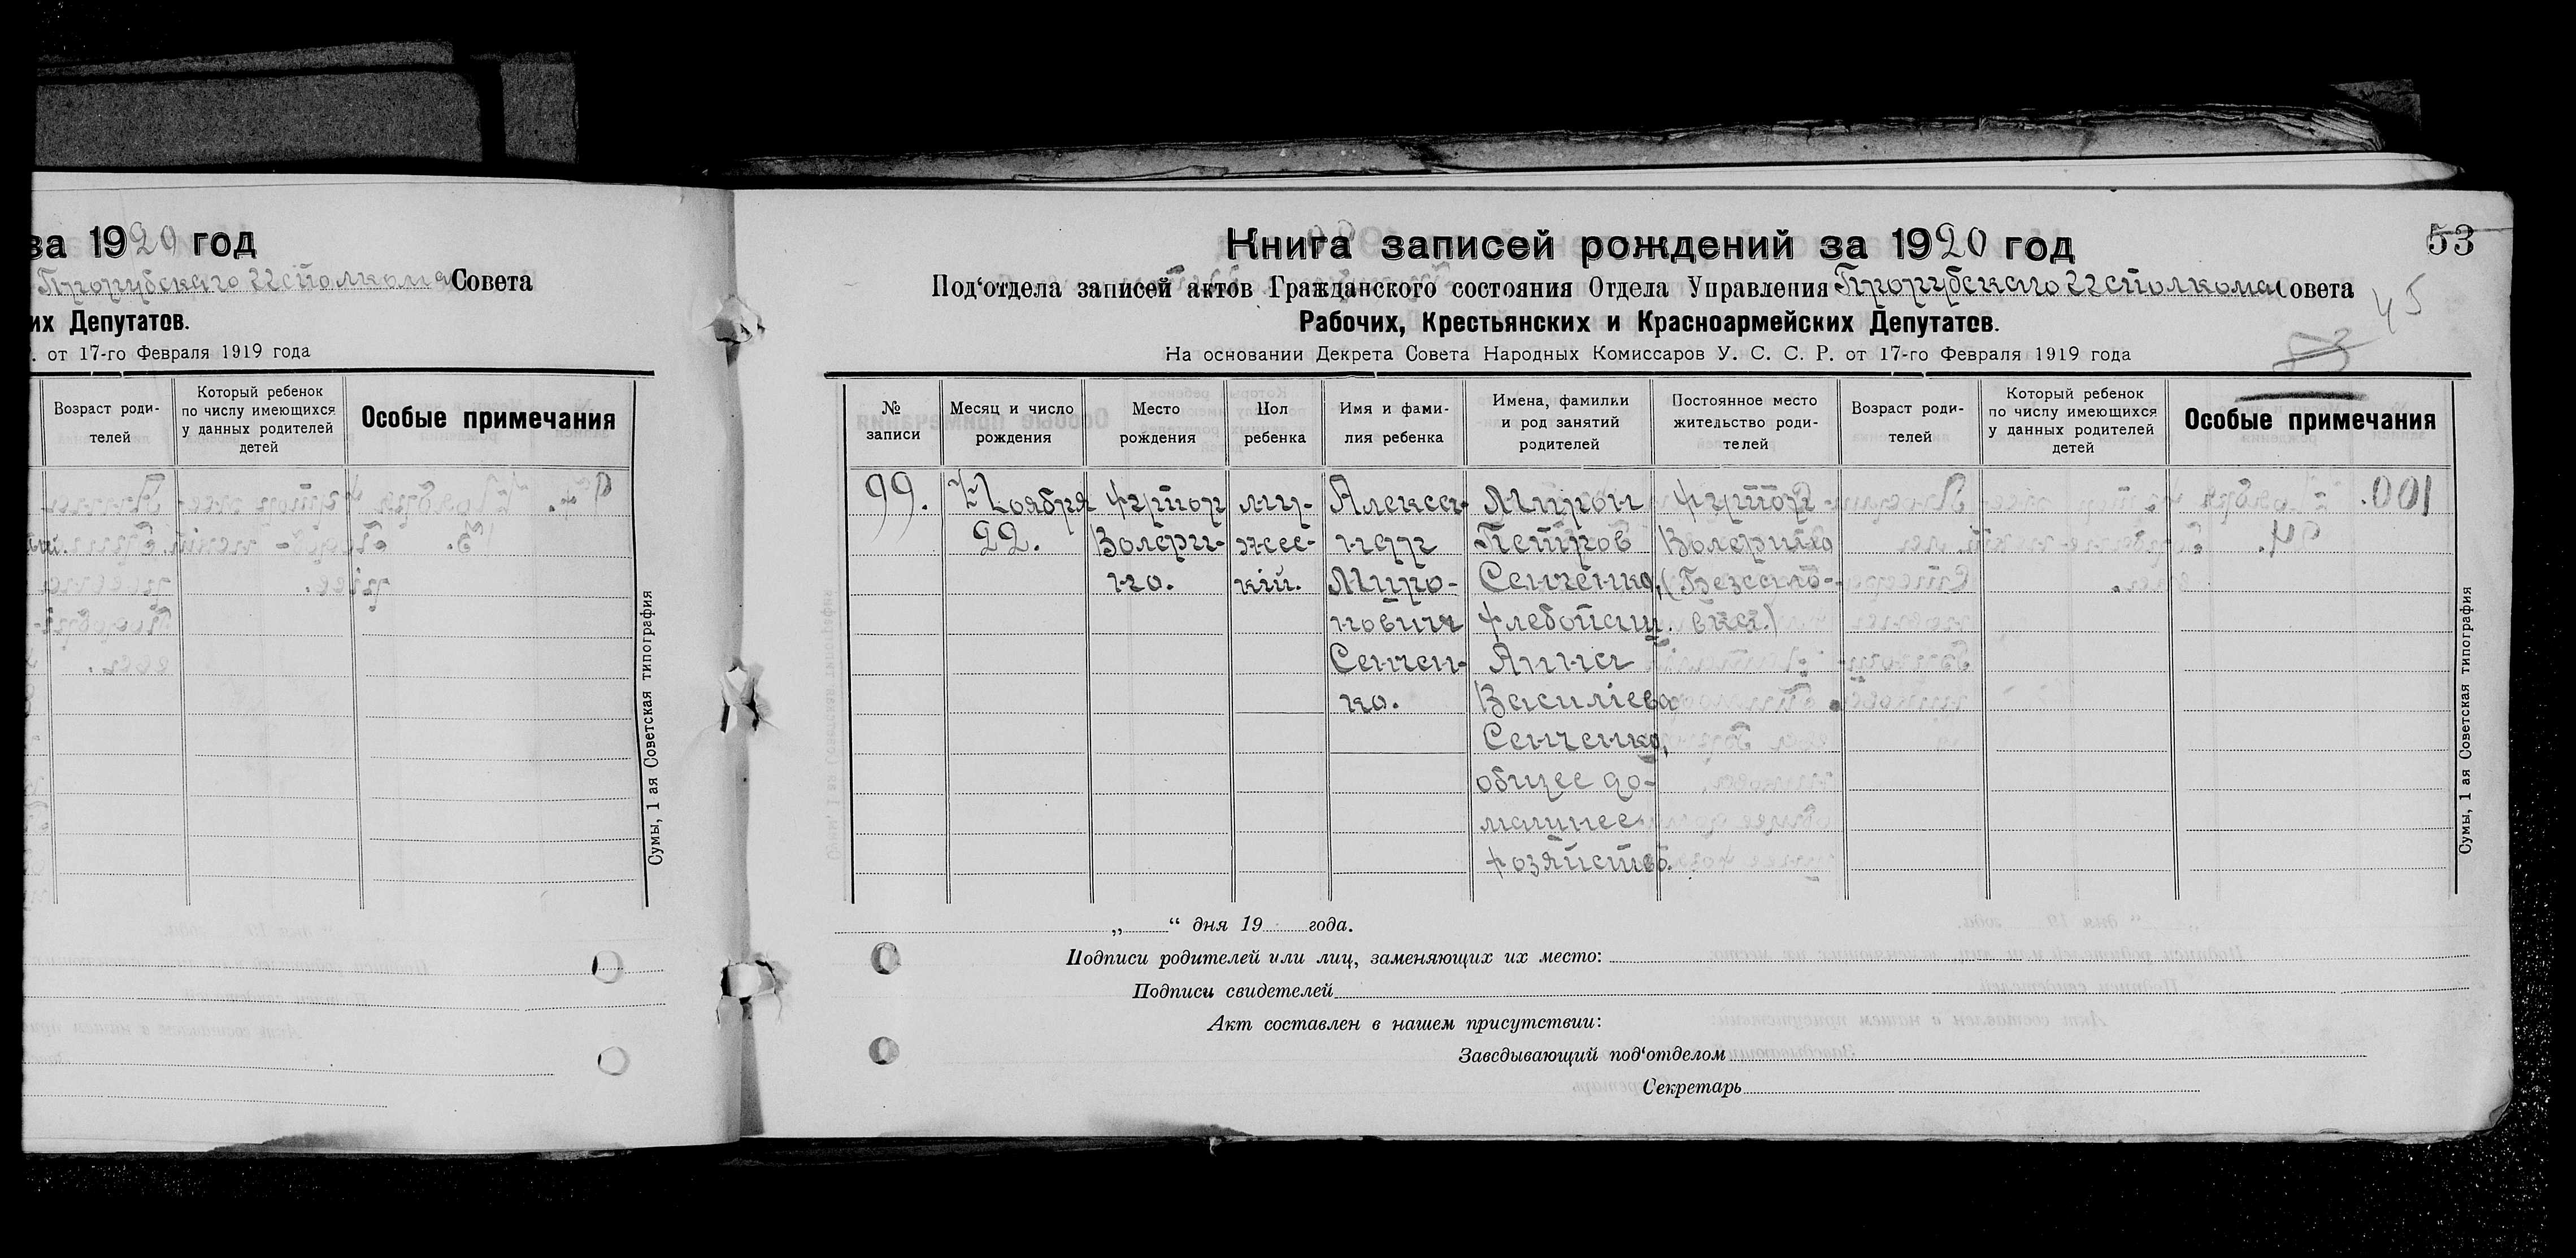 за 1920 год
Прорубского Исполкома Совета
их Депутатов.
. от 17-го Февраля 1919 года
Возраст роди-
телей
Который ребенок
по числу имеющихся
у данных родителей
детей
Особые примечания
Сумы, 1 ая Советская типография
Книга записей рождений за 1920 год
53
Под‘отдела записей актов Гражданского состояния Отдела Управления Прорубского Исполкома Совета
45
Рабочих, Крестьянских и Красноармейских Депутатов.
На основании Декрета Совета Народных Комиссаров У. С. С. Р. от 17-го Февраля 1919 года
53
№
записи
Месяц и число
рождения
Место
рождения
Пол
ребенка
Имя и фами-
лия ребенка
Имена, фамилии
и род занятий
родителей
Постоянное место
жительство роди-
телей
Возраст роди-
телей
Который ребенок
по числу имеющихся
у данных родителей
детей
Особые примечания
99.
Ноября
22.
хутор
но.
муж-
жес-
кій.
Алекса-
ндр
Миро-
нович
Сенчен-
ко.
Мирон
Петров
Сенченко,
хлебопаш.
Анна
Василіева
Сенченко,
общее до-
машнее
хозяйство.
хутор
Сумы, 1 ая Советская типография
„ “ дня 19 года.
Подписи родителей или лиц, заменяющих их место:
Подписи свидетелей
Акт составлен в нашем присутствии:
Заведывающий под‘отделом
Секретарь